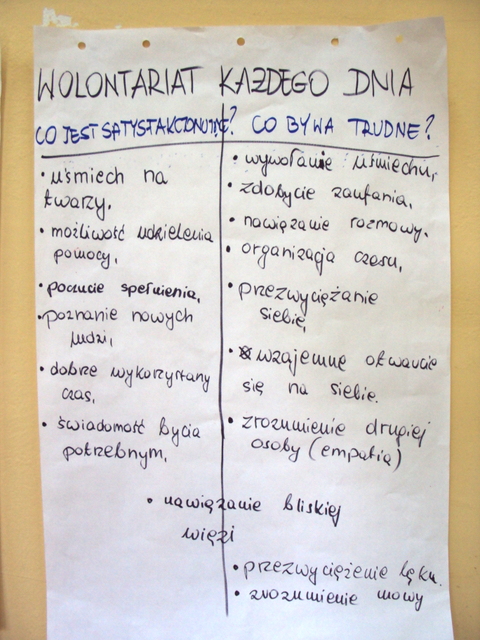 WOLONTARIAT KAŻDEGO DNIA
CO JEST SATYSFAKCJONUJĄCE?
• uśmiech na
twarzy,
• możliwość udzielenia
pomocy,
• poczucie spełnienia,
• poznanie nowych
ludzi,
• dobrze wykorzystany
czas,
• świadomość bycia
potrzebnym,
CO BYWA TRUDNE?
• wywołanie uśmiechu,
• zdobycie zaufania,
• nawiązanie rozmowy.
• organizacja czasu,
• przezwyciężanie
siebie,
• wzajemne otwarcie
się na siebie.
• zrozumienie drugiej
osoby (empatia)
• nawiązanie bliskiej
więzi
• przezwyciężenie lęku.
• zrozumienie mowy